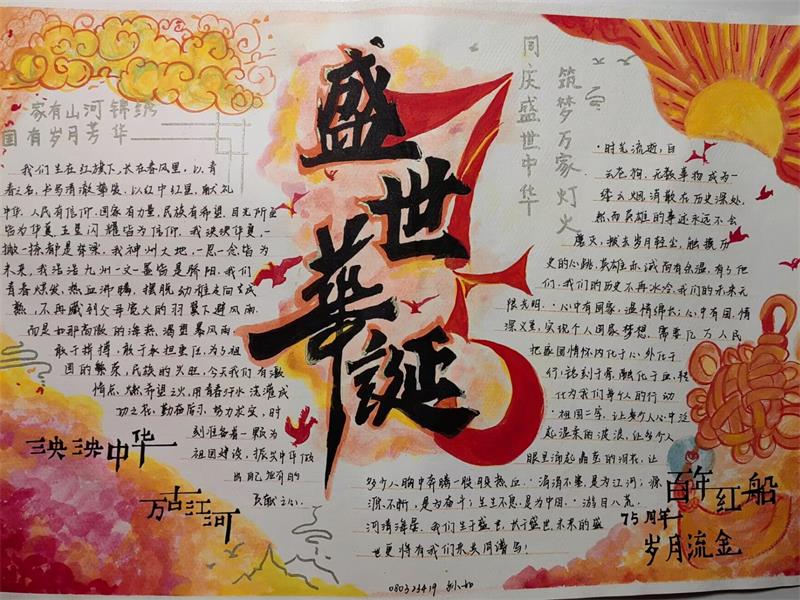 家有山河锦绣
国有岁月芳华
我们生在红旗下,长在春风里,以青
春之名,书写清澈挚爱,以红中红星,献礼
中华.人民有信仰.国家有力量,民族有希望.目光所至
皆为华夏,五星闪耀皆为信仰.我泱泱华夏,一
撇一捺都是脊梁,我神州大地,一思一念皆为
未来,我浩浩九州一文一墨皆是骄阳.我们
青春焕发,热血沸腾,摆脱幼雉走向成
熟,不再藏到父母宽大的羽翼下避风雨.
而是如那高傲的海燕渴望暴风雨.
敢于拼搏,敢于承担重任,为了祖
国的繁荣,民族的兴旺,今天我们有激
情点燃希望之火,用青春汗水浇灌成
功之花,勤奋学习,努力求实,时
刻准备着一颗为
祖国建设,振兴中华做
出自己应有的
贡献之心.
泱泱中华
万古江河
盛世華誕
同庆盛世中华
筑梦万家灯火
·时光流逝,白
云苍狗,无数事物成为一
缕云烟消散在历史深处,
然而英雄的事迹永远不会
磨灭,拨去岁月轻尘,触摸历
史的心跳,英雄赤诚而有余温,有了他
们,我们的历史不再冰冷,我们的未来无
限光明.·心中有国家,温情绵长;心中有国,情
深义重,实现个人国家梦想,需要亿万人民
把爱国情怀内化于心.外化于
行;铭刻于骨,融化于血,转
化为我们每个人的行动
·祖国二字,让多少人心中泛
起温柔的波浪,让多少人
眼里涌起晶莹的泪花,让
多少人胸中奔腾一股股热血.·涓涓不塞,是为江河;源
源不断,是为奋斗;生生不息,是为中国.·游目八荒.
河清海晏,我们生于盛世,长于盛世,未来的盛
世更将有我们来共同谱写!
百年红船
75周年
岁月流金
080323419